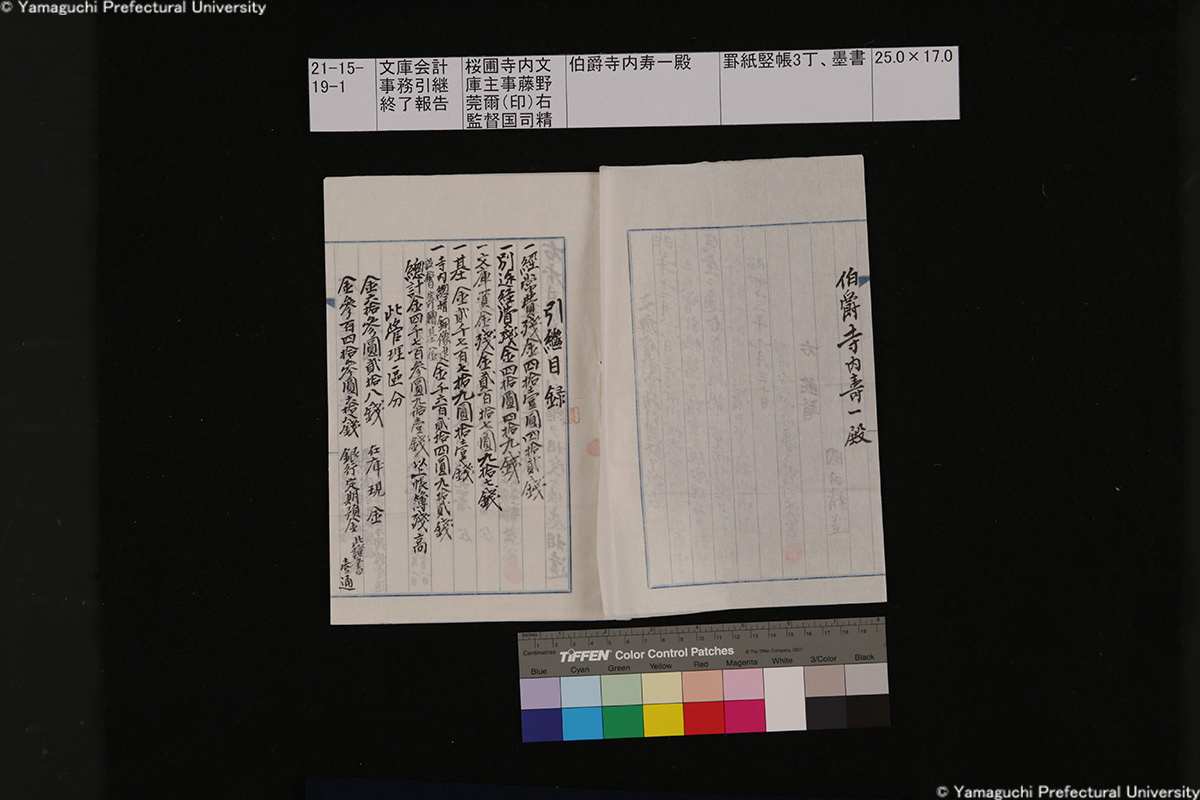 © Yamaguchi Prefectural University
21-15-
19-1
文庫会計
事務引継
終了報告
桜圃寺内文
庫主事藤野
莞爾(印)右
監督国司精
伯爵寺内寿一殿
罫紙竪帳3丁、墨書
25.0×17.0
伯爵寺内寿一殿
引継目録
一経常費残金四拾壹圓四拾貳銭
一別途経済残金四拾圓四拾九銭
一文庫資金残金貳百拾七圓九拾七銭
一基金貳千七百七拾九圓拾壹銭
一寺内総督銅像建
金千六百貳拾四圓九拾貳銭
總計金四千七百参圓九拾壹銭 以上帳簿残高
此管理区分
金拾参圓貳拾八銭 在庫現金
金参百四拾参圓
銀行定期預金 此證書
壱通
Inches
Centimetres
TIFFEN Color Control Patches
© The Tiffen Company, 2007
Blue Cyan Green Yellow Red Magenta White 3/Color Black
© Yamaguchi Prefectural University